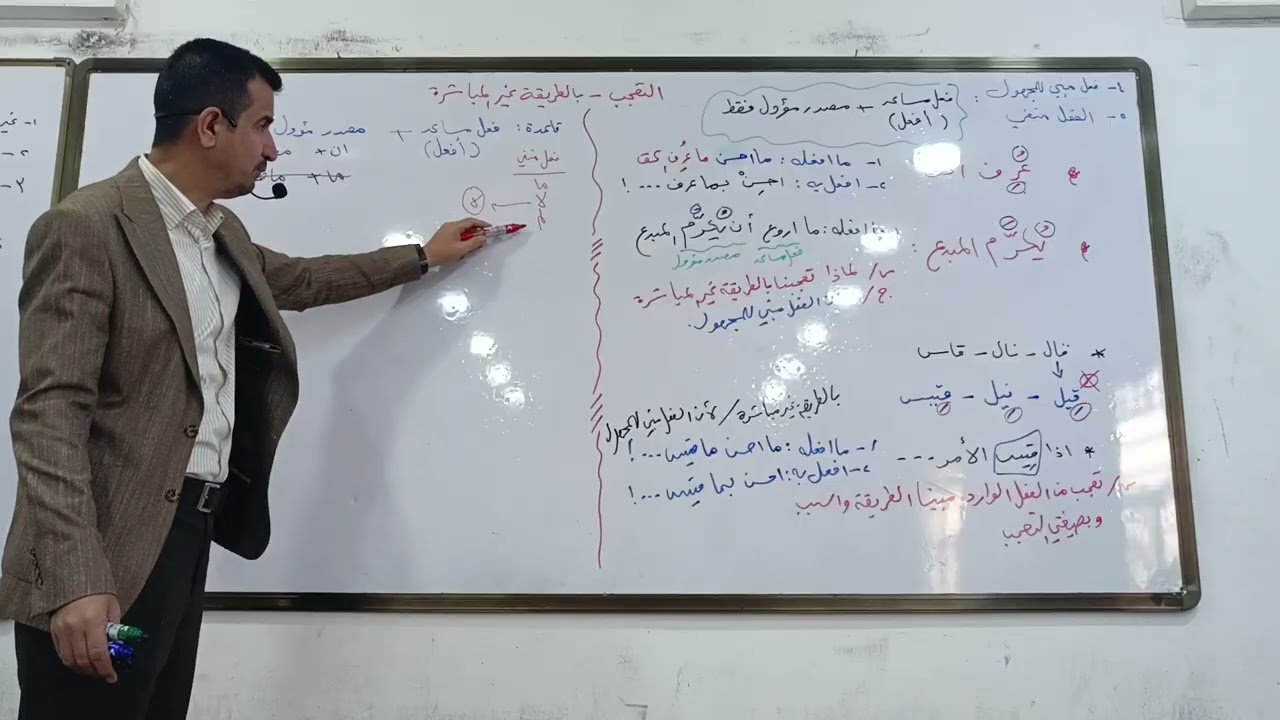 التعجب - بالطريقة غير المباشرة
٤- فعل مبني للمجهول :
٥- الفعل منفي
فعل مساعد + مصدر مؤول فقط
(أفعل)
عُرِف
١- ما افعله : ما احسن ما عُرِف
٢- افعل به : احسِنْ بما عرف ... !
يُكرَّم المبدع :
ما افعله : ما اروع أن يُكرَّم المبدع
فعل مساعد مصدر مؤول
س/ لماذا تعجبنا بالطريقة غير المباشرة
ج/ الفعل مبني للمجهول.
* قال - نال - قاس
قيل - نيل - قيس
بالطريقة غير مباشرة / لأن الفعل مبني للمجهول
* اذا قيس الأمر ...
١- ما افعله : ما احسن ما قيس ... !
٢- افعل به : احسن بما قيس ... !
س/ تعجب من الفعل الوارد مبينا الطريقة والسبب
وبصيغتي التعجب
قاعدة : فعل مساعد + مصدر مؤول
(أفعل)
ان +
ما +
فعل منفي
ما
لا
لم